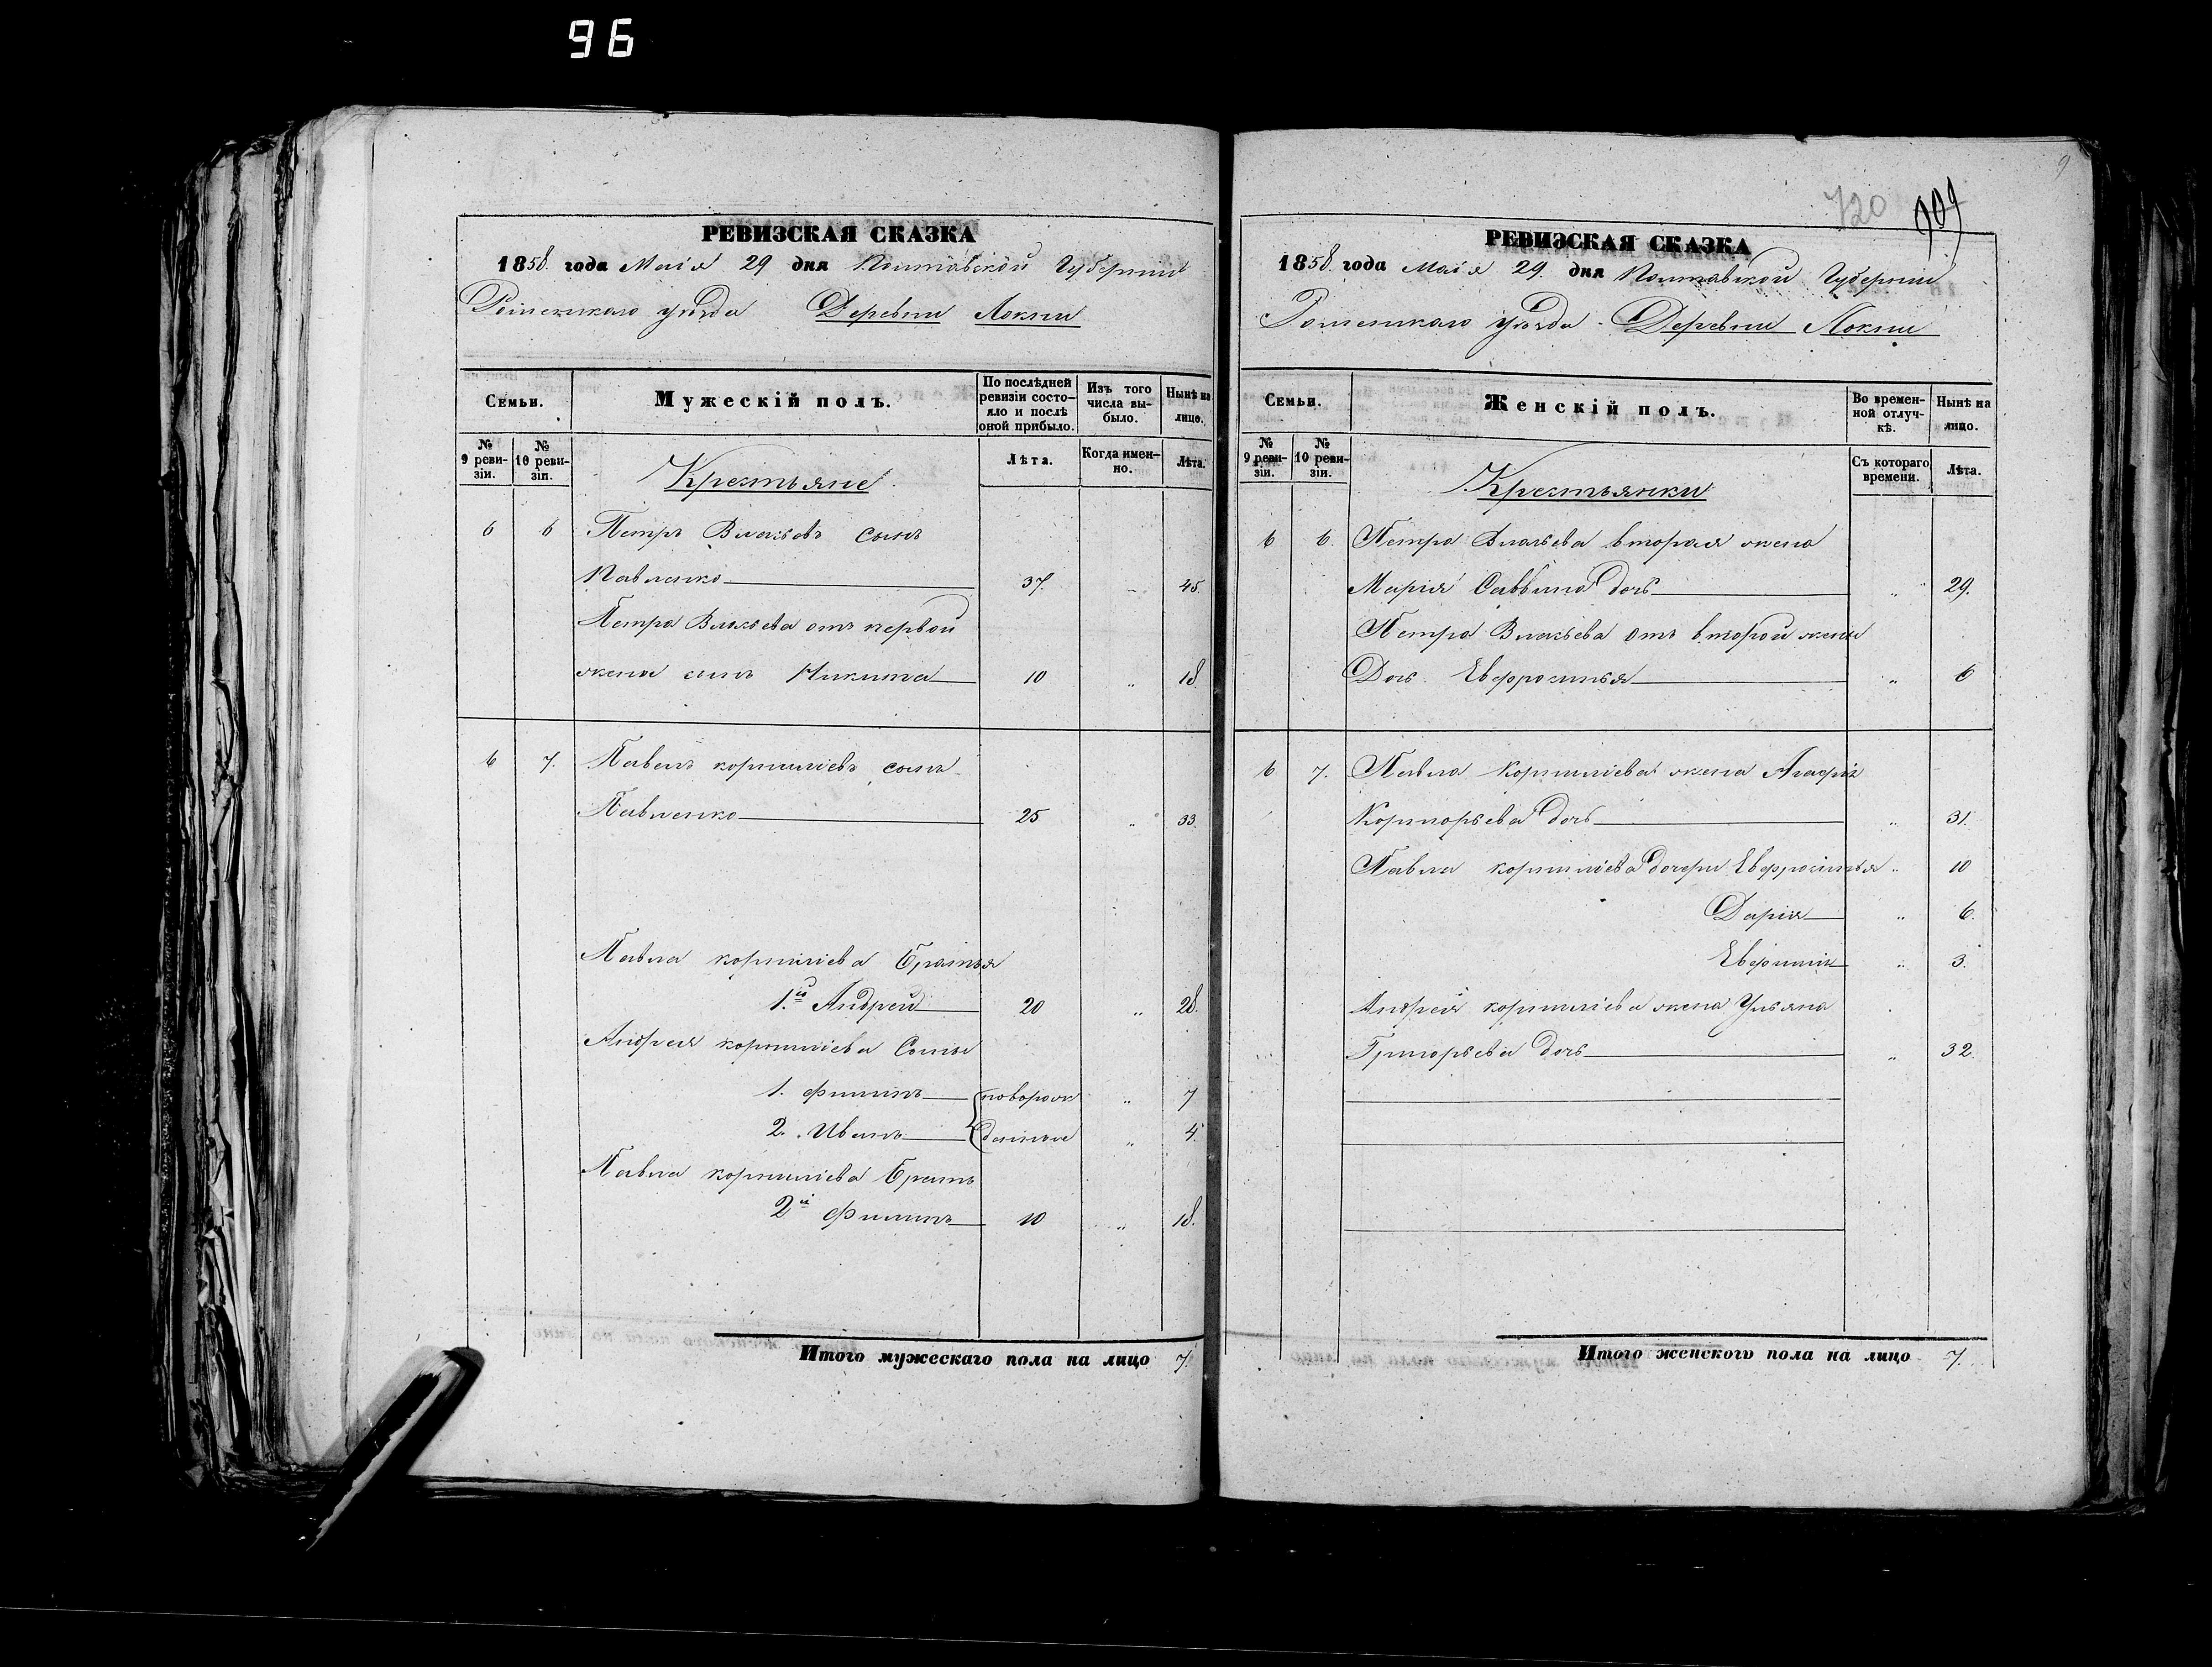 96
РЕВИЗСКАЯ СКАЗКА
1858. года Маія 29 дня Полтавской Губерніи
Роменскаго уѣзда Деревни Локни
Семьи.
Мужескій полъ.
По послѣдней ревизіи состояло и послѣ оной прибыло.
Изъ того числа выбыло.
Нынѣ на лицо.
№ 9 ревизіи.
№ 10 ревизіи.
Лѣта.
Когда именно.
Лѣта.
Крестьяне
6 6 Петръ Власьевъ сынъ
Павленко 37. 45.
Петра Власьева отъ первой
жены сынъ Никита 10 „ 18.
6 7. Павелъ корниліевъ сынъ
Павленко 25 „ 33.
Павла корниліева Братья
1.й Андрей 20 „ 28.
Андрея корниліева Сыны
1. Филипъ новорож „ 7
2. Иванъ денные „ 4.
Павла корниліева Братъ
2й Филипъ 10 „ 18.
Итого мужескаго пола на лицо 7.
9
720
РЕВИЗСКАЯ СКАЗКА
1858. года Маія 29. дня Полтавской Губерніи
Роменскаго уѣзда Деревни Локни
Семьи.
Женскій полъ.
Во временной отлучкѣ.
Нынѣ на лицо.
№ 9 ревизіи.
№ 10 ревизіи.
Съ котораго времени.
Лѣта.
Крестьянки
6 6. Петра Власьева вторая жена
Марія Саввина дочь „ 29.
Петра Власьева отъ второй жены
Дочь Евфросинья „ 6
6 7. Павла Корниліева жена Агафія
дочь „ 31.
Павла корниліева дочери Евфросинья „ 10
Дарія „ 6.
Евфимія „ 3.
Андрея корниліева жена Ульяна
Григорьева дочь „ 32.
Итого женского пола на лицо 7.